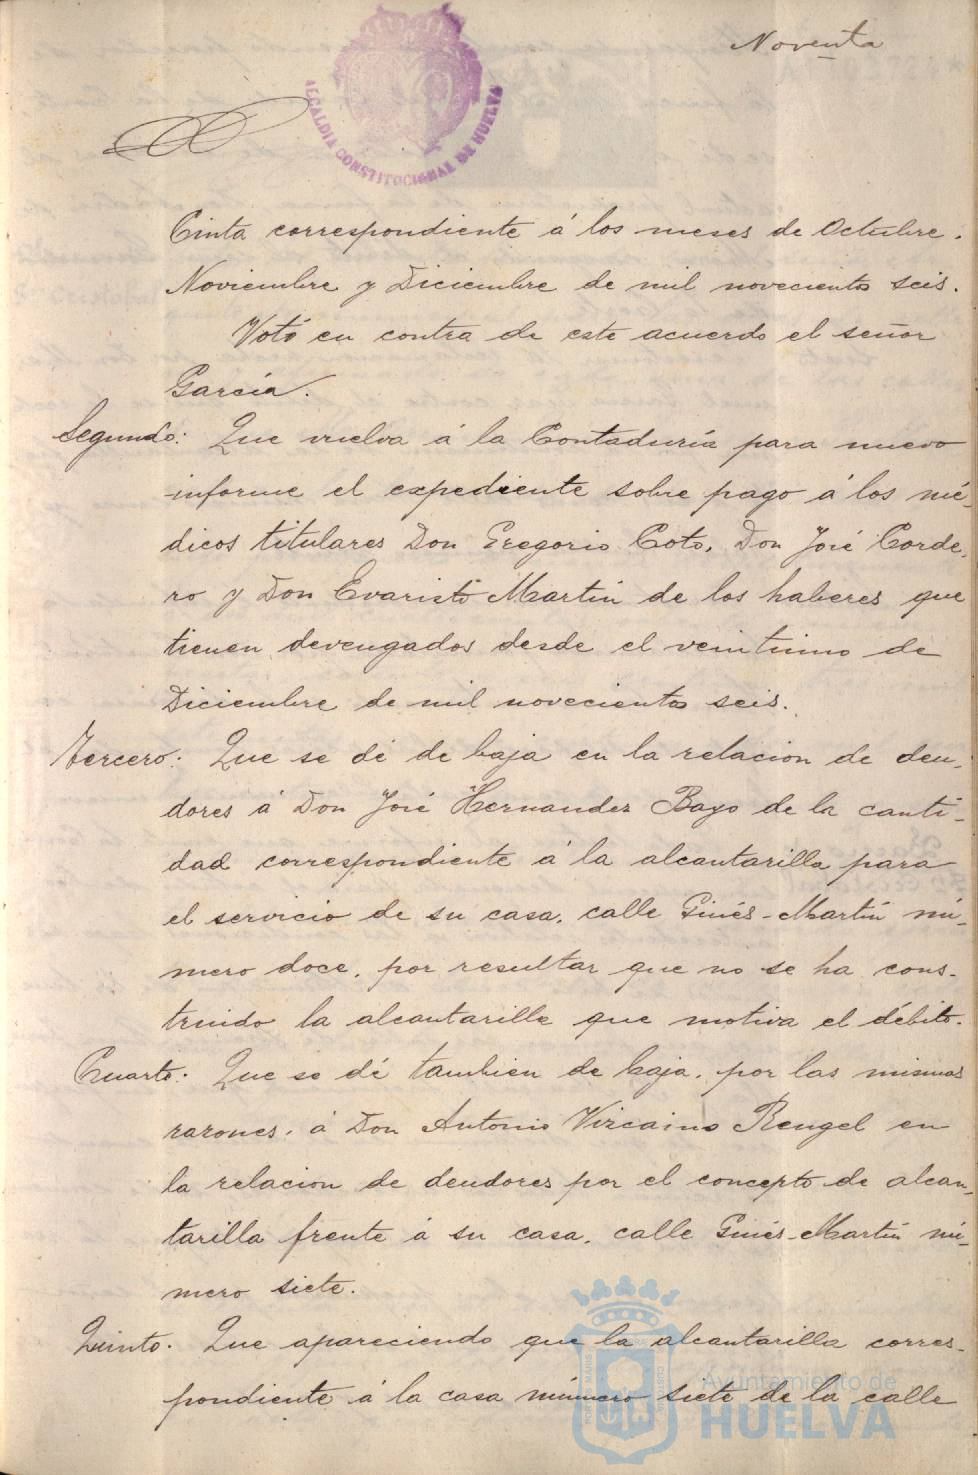 Noventa
ALCALDIA CONSTITUCIONAL DE HUELVA
Cinta correspondiente á los meses de Octubre.
Noviembre y Diciembre de mil novecientos seis.
Votó en contra de este acuerdo el señor
García.
Segundo: Que vuelva á la Contaduría para nuevo
informe el expediente sobre pago á los mé-
dicos titulares Don Gregorio Coto, Don José Corde-
ro y Don Evaristo Martín de los haberes que
tienen devengados desde el veintiuno de
Diciembre de mil novecientos seis.
Tercero: Que se dé de baja en la relacion de deu-
dores á Don José Hernandez Bayo de la canti-
dad correspondiente á la alcantarilla para
el servicio de su casa, calle Ginés-Martín nú-
mero doce, por resultar que no se ha cons-
truido la alcantarilla que motiva el débito.
Cuarto: Que se dé tambien de baja, por las mismas
razones, á Don Antonio Vizcaino Rengel en
la relacion de deudores por el concepto de alcan-
tarilla frente á su casa, calle Ginés-Martín nú-
mero siete.
Quinto. Que apareciendo que la alcantarilla corres-
pondiente á la casa número siete de la calle
Ayuntamiento de
HUELVA